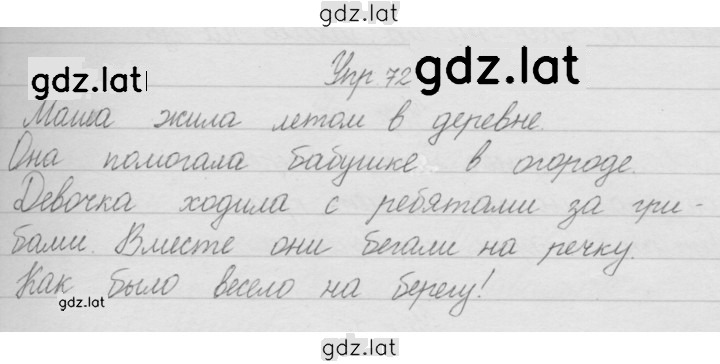 gdz.lat
gdz.lat Упр 72 gdz.lat
Маша жила летом в деревне.
Она помогала бабушке в огороде.
Девочка ходила с ребятами за гри-
бами. Вместе они бегали на речку.
Как было весело на берегу!
gdz.lat
gdz.lat